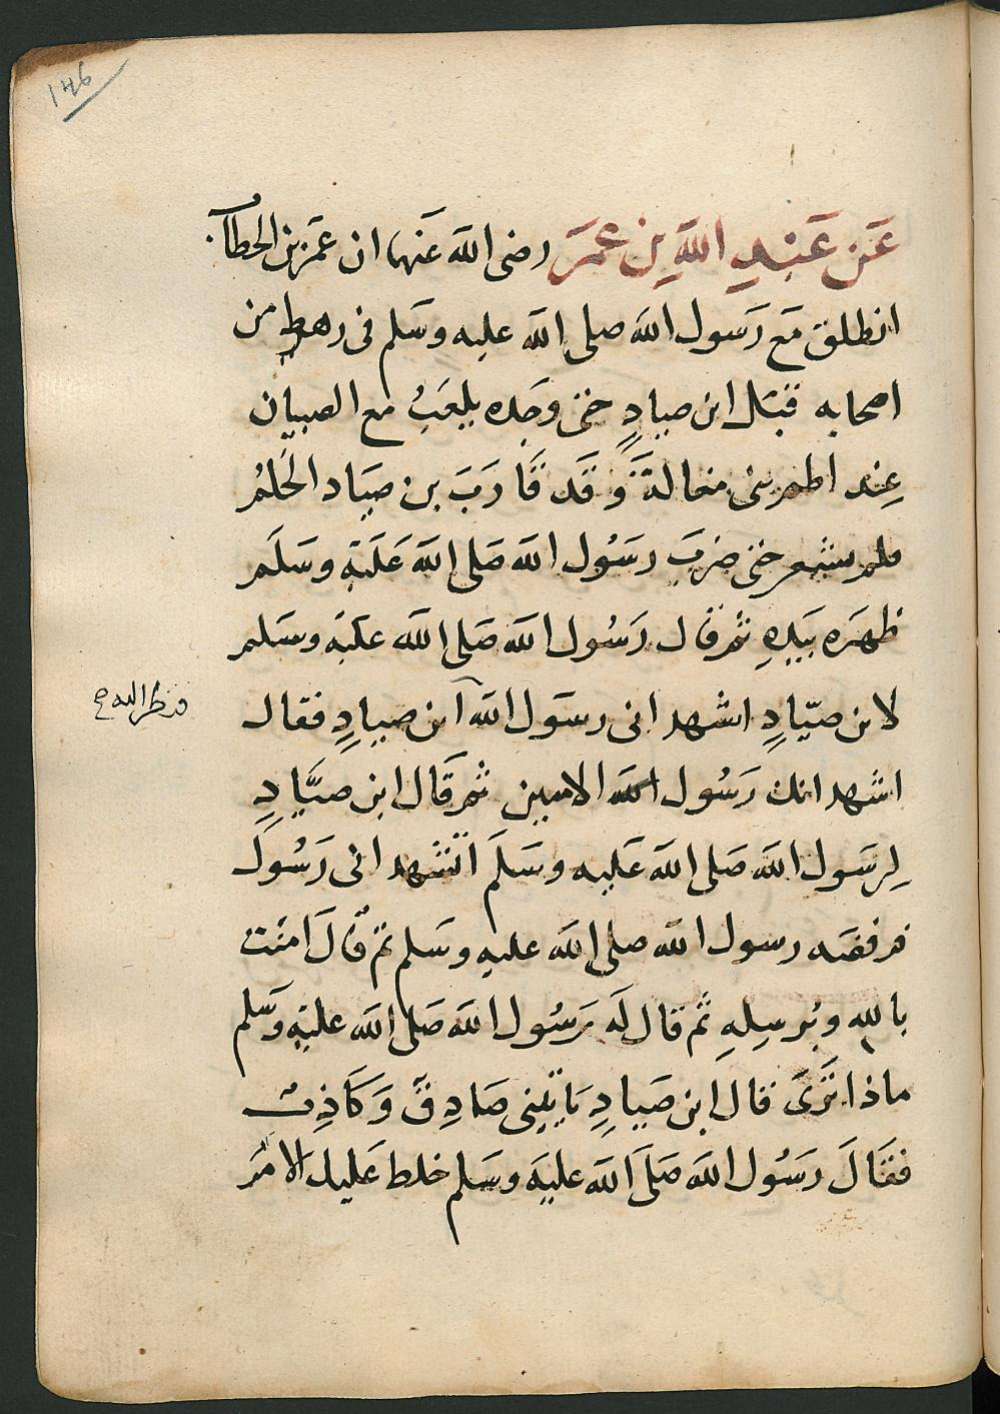 146
عَن عَبْدِ اللهِ بن عمَرَ رضى الله عَنهما ان عمَر بن الخطاب
انطلق مَع رَسول الله صلى الله عليه وسَلم فى رهط من
اصحابه قبَل ابن صيادٍ حتى وجَده يلعَبُ مع الصبيان
عِند اطم بنى مغالة وَقَد قَارَبَ بن صيَاد الحَلمُ
فلم يشعر حتى ضربَ رسَوُل الله صَلى الله عَليَهِ وسَلَم
ظهَره بيَدهِ ثم قال رَسُول الله صَلى الله عليَه وسَلم
لابن صيّادٍ اشهد انى رسَول الله ابن صيادٍ فقال
اشهد انك رَسُول الله الاميين ثم قَال ابن صيَّادٍ
لِرسَول الله صَلى الله عَليه وسَلَم اتشهد انى رَسُول
فرفضَه رسول الله صلى الله عليهِ وسَلم ثم قال امَنت
بالله وبُرسِلِهِ ثَم قال لَه رَسُول الله صَلى الله عليَهِ وسَلم
ماذا تَرىَ قال ابن صَيادٍ يَاتينِى صَادِقَ وَكَاذِبُ
فقَالَ رَسُول الله صَلىَ الله عليَه وسَلم خلط عَليك الامرَ